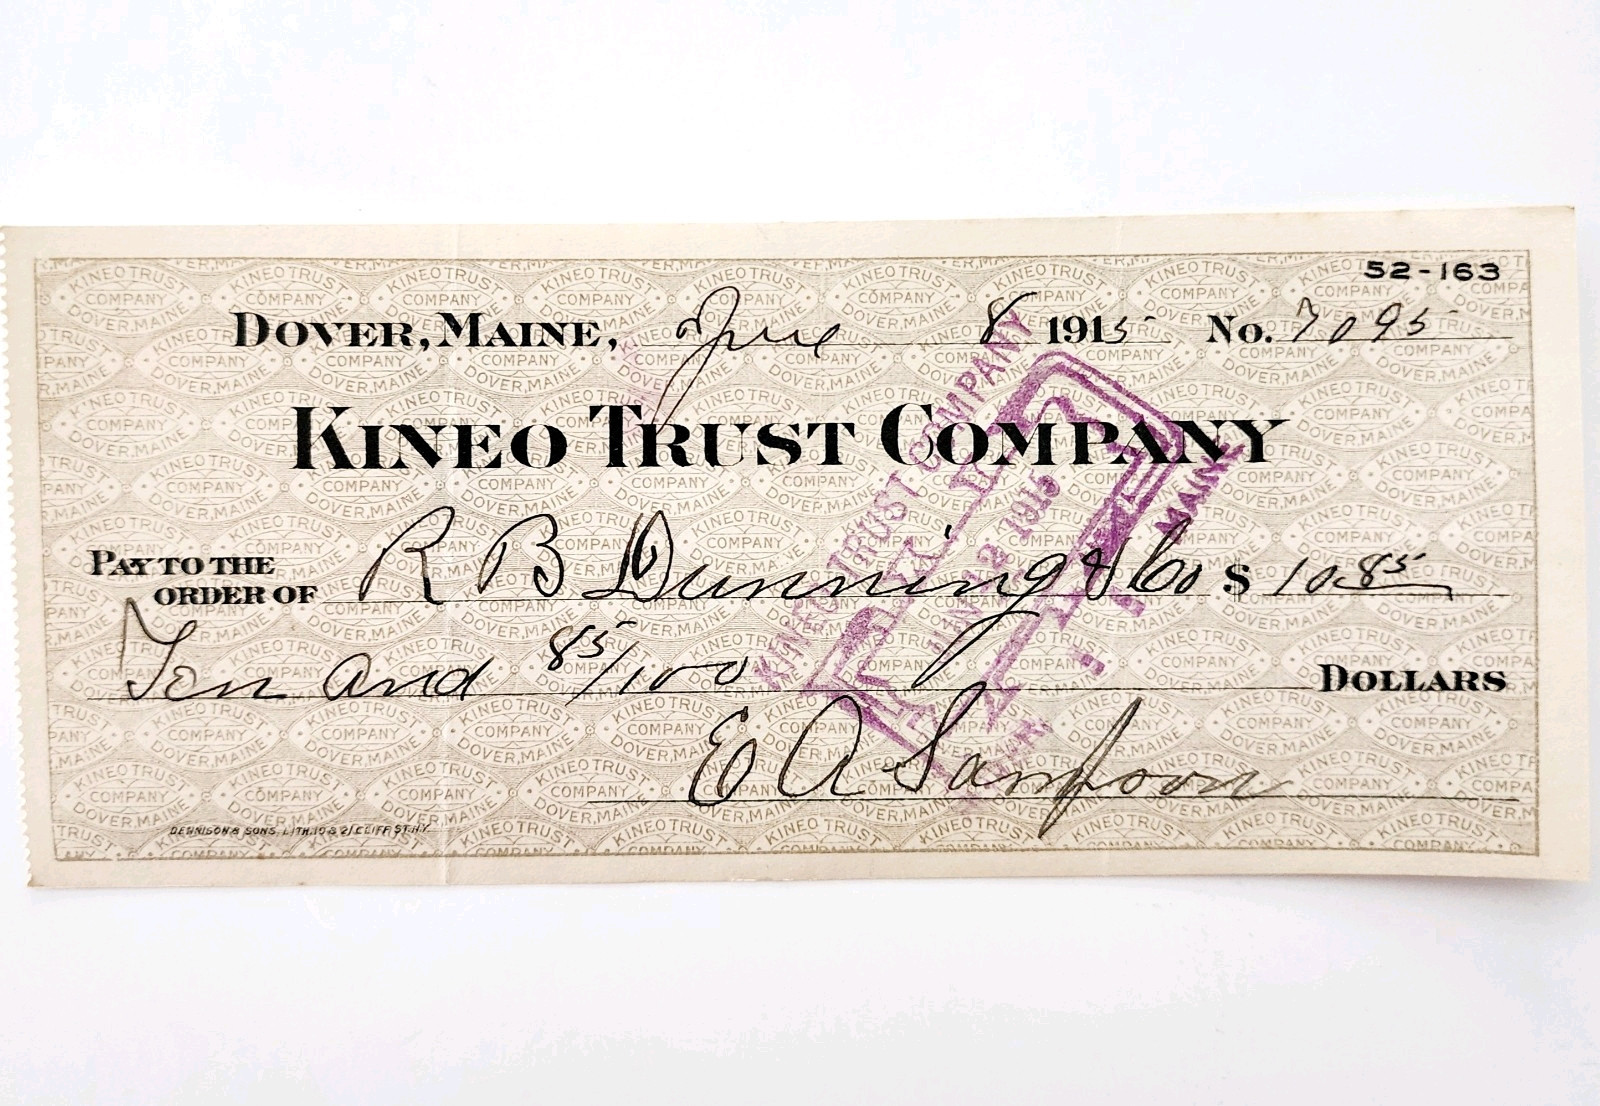 52-163
DOVER, MAINE, June 8 1915 No. 7095
KINEO TRUST COMPANY
PAY TO THE ORDER OF R B Dunning & Co $ 10.85
Ten and 85/100 DOLLARS
E A
KINEO TRUST COMPANY
PAID
JUN 12 1915
MAINE
DENNISON & SONS. LITH. 19 & 21 CLIFF ST. N.Y.